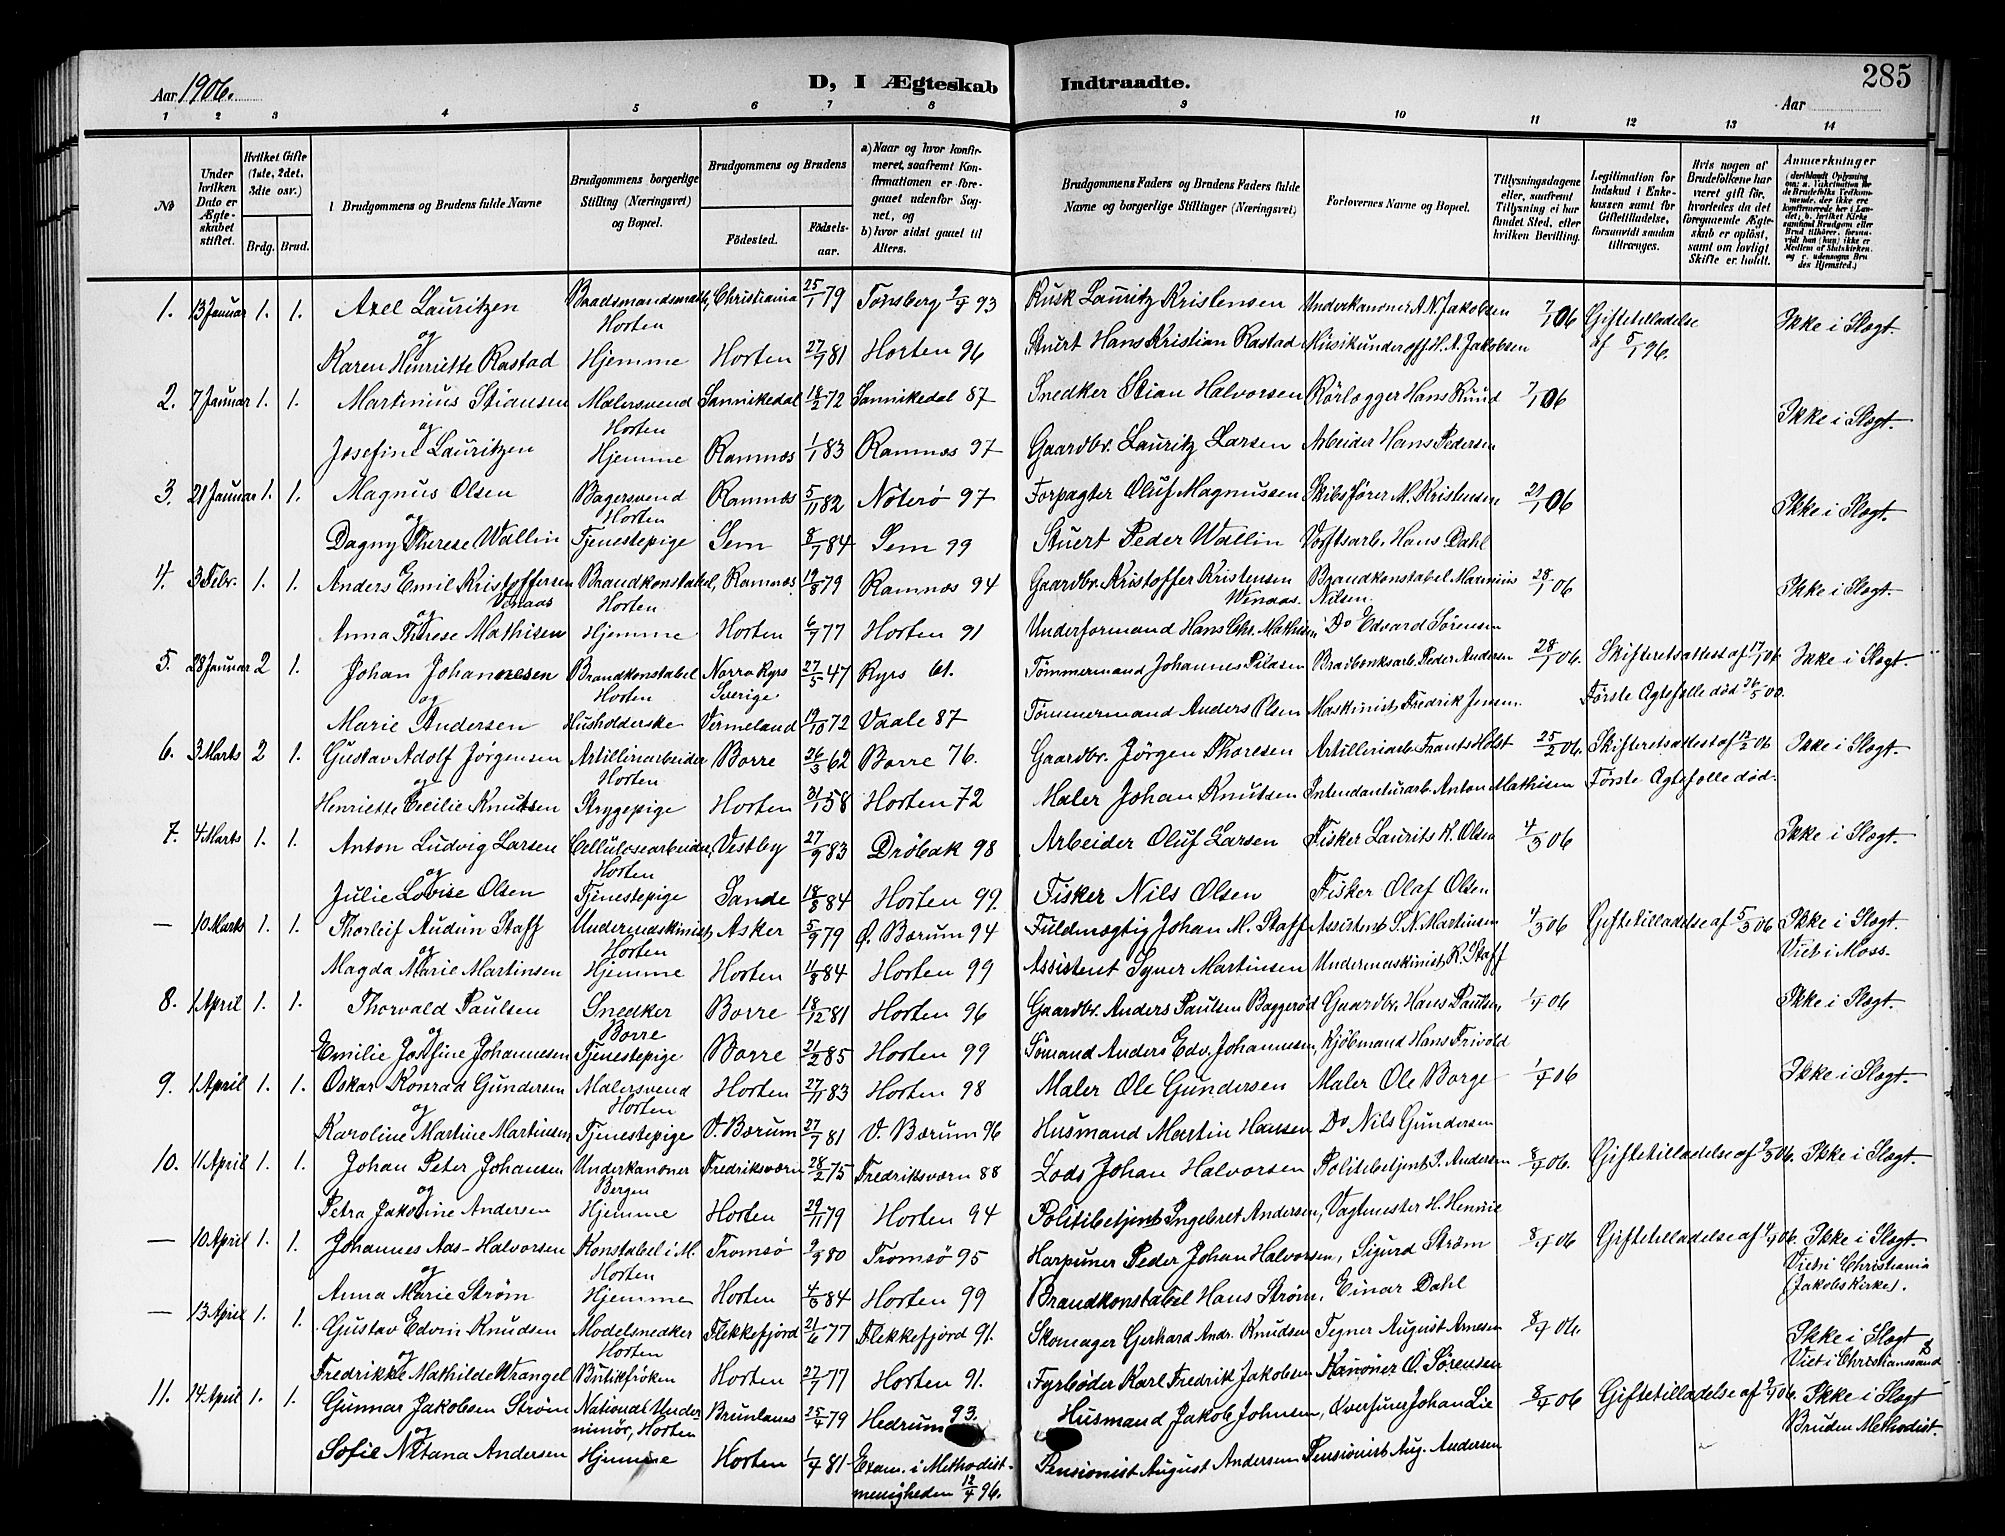 Aar 1906.
D, I Ægteskab Indtraadte.
285
Aar
1 2 3 4 5 6 7 8 9 10 11 12 13 14
No
Under hvilken Dato er Ægteskabet stiftet.
Hvilket Gifte (1ste, 2det, 3die osv.)
Brdg. Brud.
Brudgommens og Brudens fulde Navne
Brudgommens borgerlige Stilling (Næringsvei) og Bopæl.
Brudgommens og Brudens
Fødested. Fødselsaar.
a) Naar og hvor konfirmeret, saafremt Konfirmationen er foregaaet udenfor Sognet, og
b) hvor sidst gaaet til Alters.
Brudgommens Faders og Brudens Faders fulde Navne og borgerlige Stillinger (Næringsvei)
Forlovernes Navne og Bopæl.
Tillysningsdagene eller, saafremt Tillysning ei har fundet Sted, efter hvilken Bevilling.
Legitimation for Indskud i Enkekassen samt for Giftetilladelse, forsaavidt saadan tiltrænges.
Hvis nogen af Brudefolkene har været gift før, hvorledes da det foregaaende Ægteskab er opløst, samt om lovligt Skifte er holdt.
Anmærkninger
1. 13 Januar 1. 1. Axel Lauritzen Christiania 25/1 79 Tønsberg 2/4 93 Rusk Lauritz Kristensen Underkanoner A. N. Jakobsen 7/1 06 Giftetilladelse Ikke i Slægt.
og Horten af 5/1 96.
Karen Henriette Rastad Hjemme Horten 27/7 81 Horten 96 Stuert Hans Kristian Rastad Musikunderoff. H. A. Jakobsen
2. 7 Januar 1. 1. Martinius Stiansen Malersvend Sannikedal 18/2 72 Sannikedal 87 Snedker Stian Halvorsen Rörlægger Hans Ruud 7/1 06 Ikke i Slægt.
og Horten
Josefine Lauritzen Hjemme Ramnæs 1/1 83 Ramnæs 97 Gaardbr. Lauritz Larsen Arbeider Hans Pedersen
3. 21 Januar 1. 1. Magnus Olsen Bagersvend Ramnæs 5/11 82 Nøterø 97 Forpagter Oluf Magnussen Skibsfører M. Kristensen 21/1 06 Ikke i Slægt.
og Horten
Dagny Therese Wallin Tjenestepige Sem 8/1 84 Sem 99 Stuert Peder Wallin Værftsarb. Hans Dahl
4. 3 Febr. 1. 1. Anders Emil Kristoffersen Brandkonstabel, Ramnæs 19/8 79 Ramnæs 94 Gaardbr. Kristoffer Kristensen Brandkonstabel Marinius 28/1 06 Ikke i Slægt.
Venaas Horten Wenaas. Nilsen.
og
Anna Therese Mathisen Hjemme Horten 6/7 77 Horten 91 Underformand Hans Chr. Mathisen Do Edvard Sørensen
5. 28 Januar 2 1. Johan Johannesen Brandkonstabel Norra Ryrs 27/5 47 Ryrs 61. Tømmermand Johannes Pilasen Brædbænksarb. Peder Andersen 28/1 06. Skifteretsattest af 17/1 06. Ikke i Slægt.
og Horten Sverige Første Ægtefælle død 26/5 00.
Marie Andersen Husholderske Vermeland 19/10 72 Vaale 87 Tømmermand Anders Olsen Maskinist Fredrik Jensen.
6. 3 Marts 2 1. Gustav Adolf Jørgensen Artilleriarbeider Borre 26/3 62 Borre 76. Gaardbr. Jørgen Thoresen Artilleriarb. Frants Holst 25/2 06. Skifteretsattest af 12/2 06 Ikke i Slægt.
og Horten Første Ægtefælle død.
Henriette Cecilie Knutsen Strygepige Horten 31/1 58 Horten 72 Maler Johan Knutsen Intendanturarb. Anton Mathisen
7. 4 Marts 1. 1. Anton Ludvig Larsen Cellulosearbeider, Vestby 27/9 83 Drøbak 98 Arbeider Oluf Larsen Fisker Laurits K. Olsen 4/3 06 Ikke i Slægt.
og Horten
Julie Lovise Olsen Tjenestepige Sande 18/8 84 Horten 99. Fisker Nils Olsen Fisker Olaf Olsen
— 10 Marts 1. 1. Thorleif Audun Staff Undermaskinist, Asker 5/9 79 Ø. Bærum 94 Fuldmægtig Johan M. Staff Assistent S. N. Martinsen 4/3 06 Giftetilladelse af 5/3 06 Ikke i Slægt.
og Horten Viet i Moss.
Magda Marie Martinsen Hjemme Horten 11/8 84 Horten 99 Assistent Syver Martinsen Undermaskinist K. Staff
8. 1 April 1. 1. Thorvald Paulsen Snedker Borre 18/12 81 Horten 96 Gaardbr. Anders Paulsen Baggerød Gaardbr. Hans Paulsen, 1/4 06 Ikke i Slægt.
og Borre
Emilie Josefine Johannesen Tjenestepige Borre 21/2 85 Horten 99 Sømand Anders Edv. Johannesen, Kjøbmand Hans Frivold
9. 1 April 1. 1. Oskar Konrad Gundersen Malersvend Horten 27/11 83 Horten 98 Maler Ole Gundersen Maler Ole Borge 1/4 06 Ikke i Slægt.
og Horten
Karoline Martine Martinsen, Tjenestepige V. Bærum 27/7 81 V. Bærum 96 Husmand Martin Hansen Do Nils Gundersen
10. 11 April 1. 1. Johan Peter Johansen Underkanoner Fredriksværn 28/2 75 Fredriksværn 88 Lods Johan Halvorsen Politibetjent P. Andersen 8/4 06. Giftetilladelse af 2/3 06. Ikke i Slægt.
og Bergen
Petra Jakobine Andersen Hjemme Horten 29/11 79 Horten 94 Politibetjent Ingebret Andersen, Vagtmester H. Henrie
— 10 April 1. 1. Johannes Aas-Halvorsen Konstabel i M. Tromsø 9/9 80 Tromsø 95 Harpuner Peder Johan Halvorsen, Sigurd Strøm 8/4 06 Giftetilladelse af 4/4 06. Ikke i Slægt.
og Horten Viet i Christiania
Anna Marie Strøm Hjemme Horten 4/3 84 Horten 99 Brandkonstabel Hans Strøm, Einar Dahl (Jakobs Kirke).
— 13 April 1. 1. Gustav Edvin Knudsen Modelsnedker Flekkefjord 21/6 77 Flekkefjord 91. Skomager Gerhard Andr. Knudsen Tegner August Arnesen 8/4 06. Ikke i Slægt
og Horten Viet i Christianssand
Fredrikke Mathilde Wrangel Butikfrøken Horten 27/7 77 Horten 91. Fyrbøder Karl Fredrik Jakobsen Kanoner O. Sørensen
11. 14 April 1. 1. Gunnar Jakobsen Strøm National Under Brunlanes 25/4 79 Hedrum 93. Husmand Jakob Johnsen, Overfurer Johan Lie 8/4 06 Giftetilladelse af 2/4 06. Ikke i Slægt
og minør, Horten Bruden Methodist.
Sofie Natana Andersen Hjemme Horten 1/4 81 Exam. i Methodist- Pensionist August Andersen Pensionist Aug. Andersen
menigheden 12/4 96.